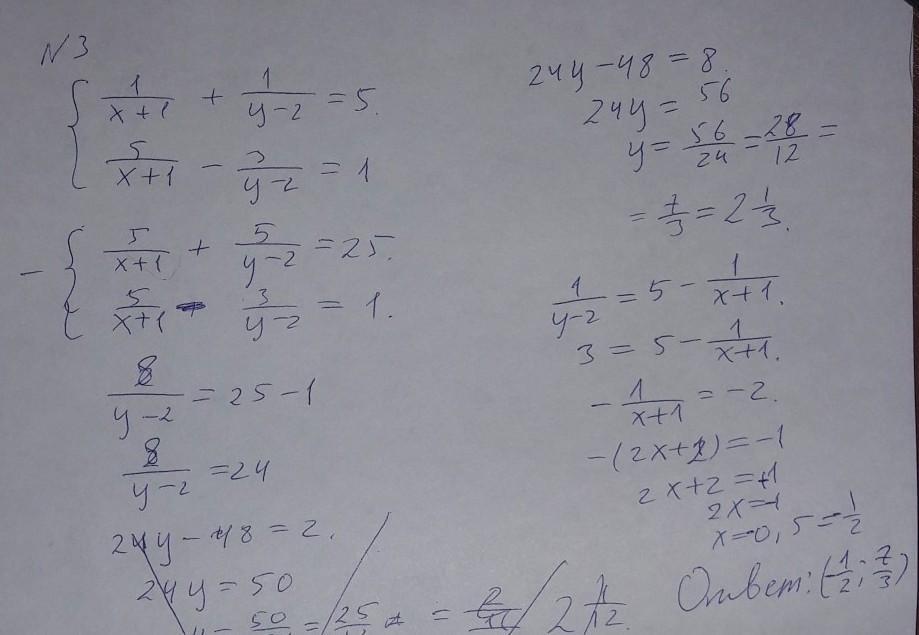 N3
{ 1/(x+1) + 1/(y-2) = 5.
5/(x+1) - 3/(y-2) = 1
- { 5/(x+1) + 5/(y-2) = 25.
5/(x+1) - 3/(y-2) = 1.
8/(y-2) = 25-1
8/(y-2) = 24
24y - 48 = 2.
24y = 50
y = 50/ = 25/ = = 2 1/12.
24y - 48 = 8.
24y = 56
y = 56/24 = 28/12 =
= 7/3 = 2 1/3.
1/(y-2) = 5 - 1/(x+1).
3 = 5 - 1/(x+1).
- 1/(x+1) = -2.
-(2x+2) = -1
2x+2 = +1
2x = -1
x = -0,5 = -1/2
Ответ: (-1/2; 7/3)